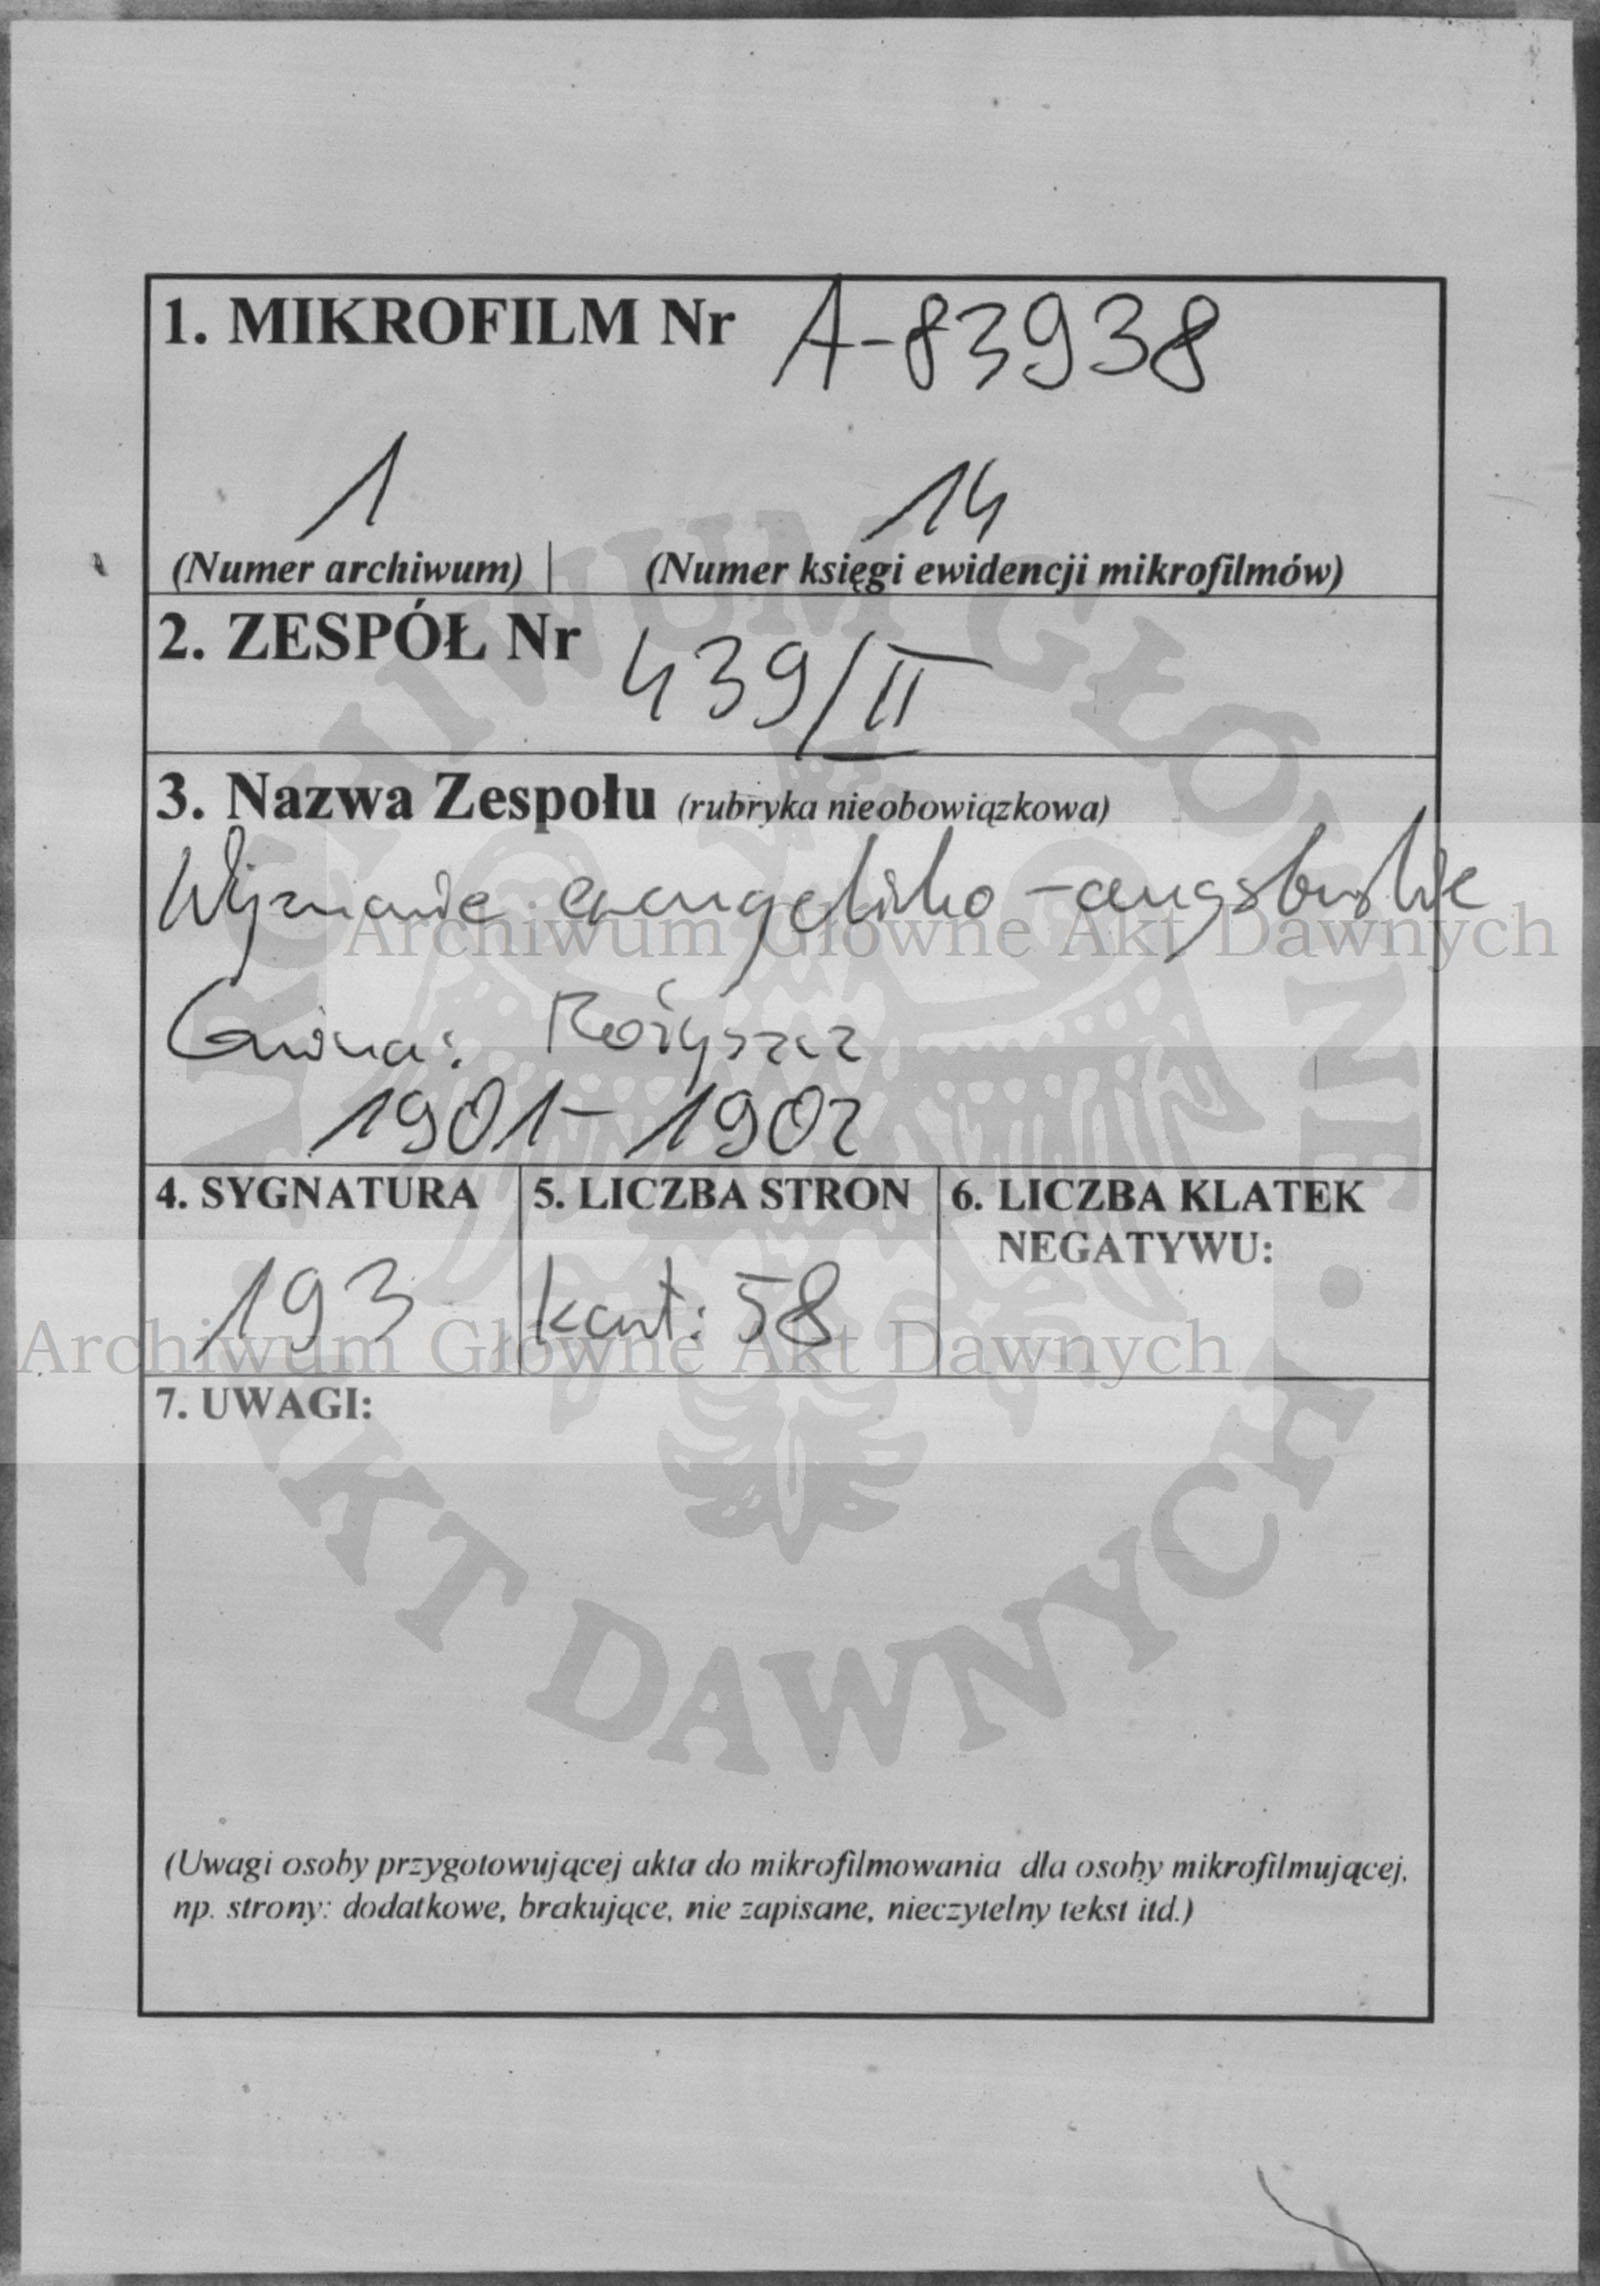 1. MIKROFILM Nr A-83938
1 14
(Numer archiwum) (Numer księgi ewidencji mikrofilmów)
2. ZESPÓŁ Nr 439/II
3. Nazwa Zespołu (rubryka nieobowiązkowa)
Wyznanie ewangelicko-augsburskie
Archiwum Główne Akt Dawnych
Gmina: Rożyszcz
1901-1902
4. SYGNATURA 5. LICZBA STRON 6. LICZBA KLATEK
NEGATYWU:
193 kart: 58
Archiwum Główne Akt Dawnych
7. UWAGI:
(Uwagi osoby przygotowującej akta do mikrofilmowania dla osoby mikrofilmującej,
np. strony: dodatkowe, brakujące, nie zapisane, nieczytelny tekst itd.)
ARCHIWUM GŁÓWNE · AKT DAWNYCH ·